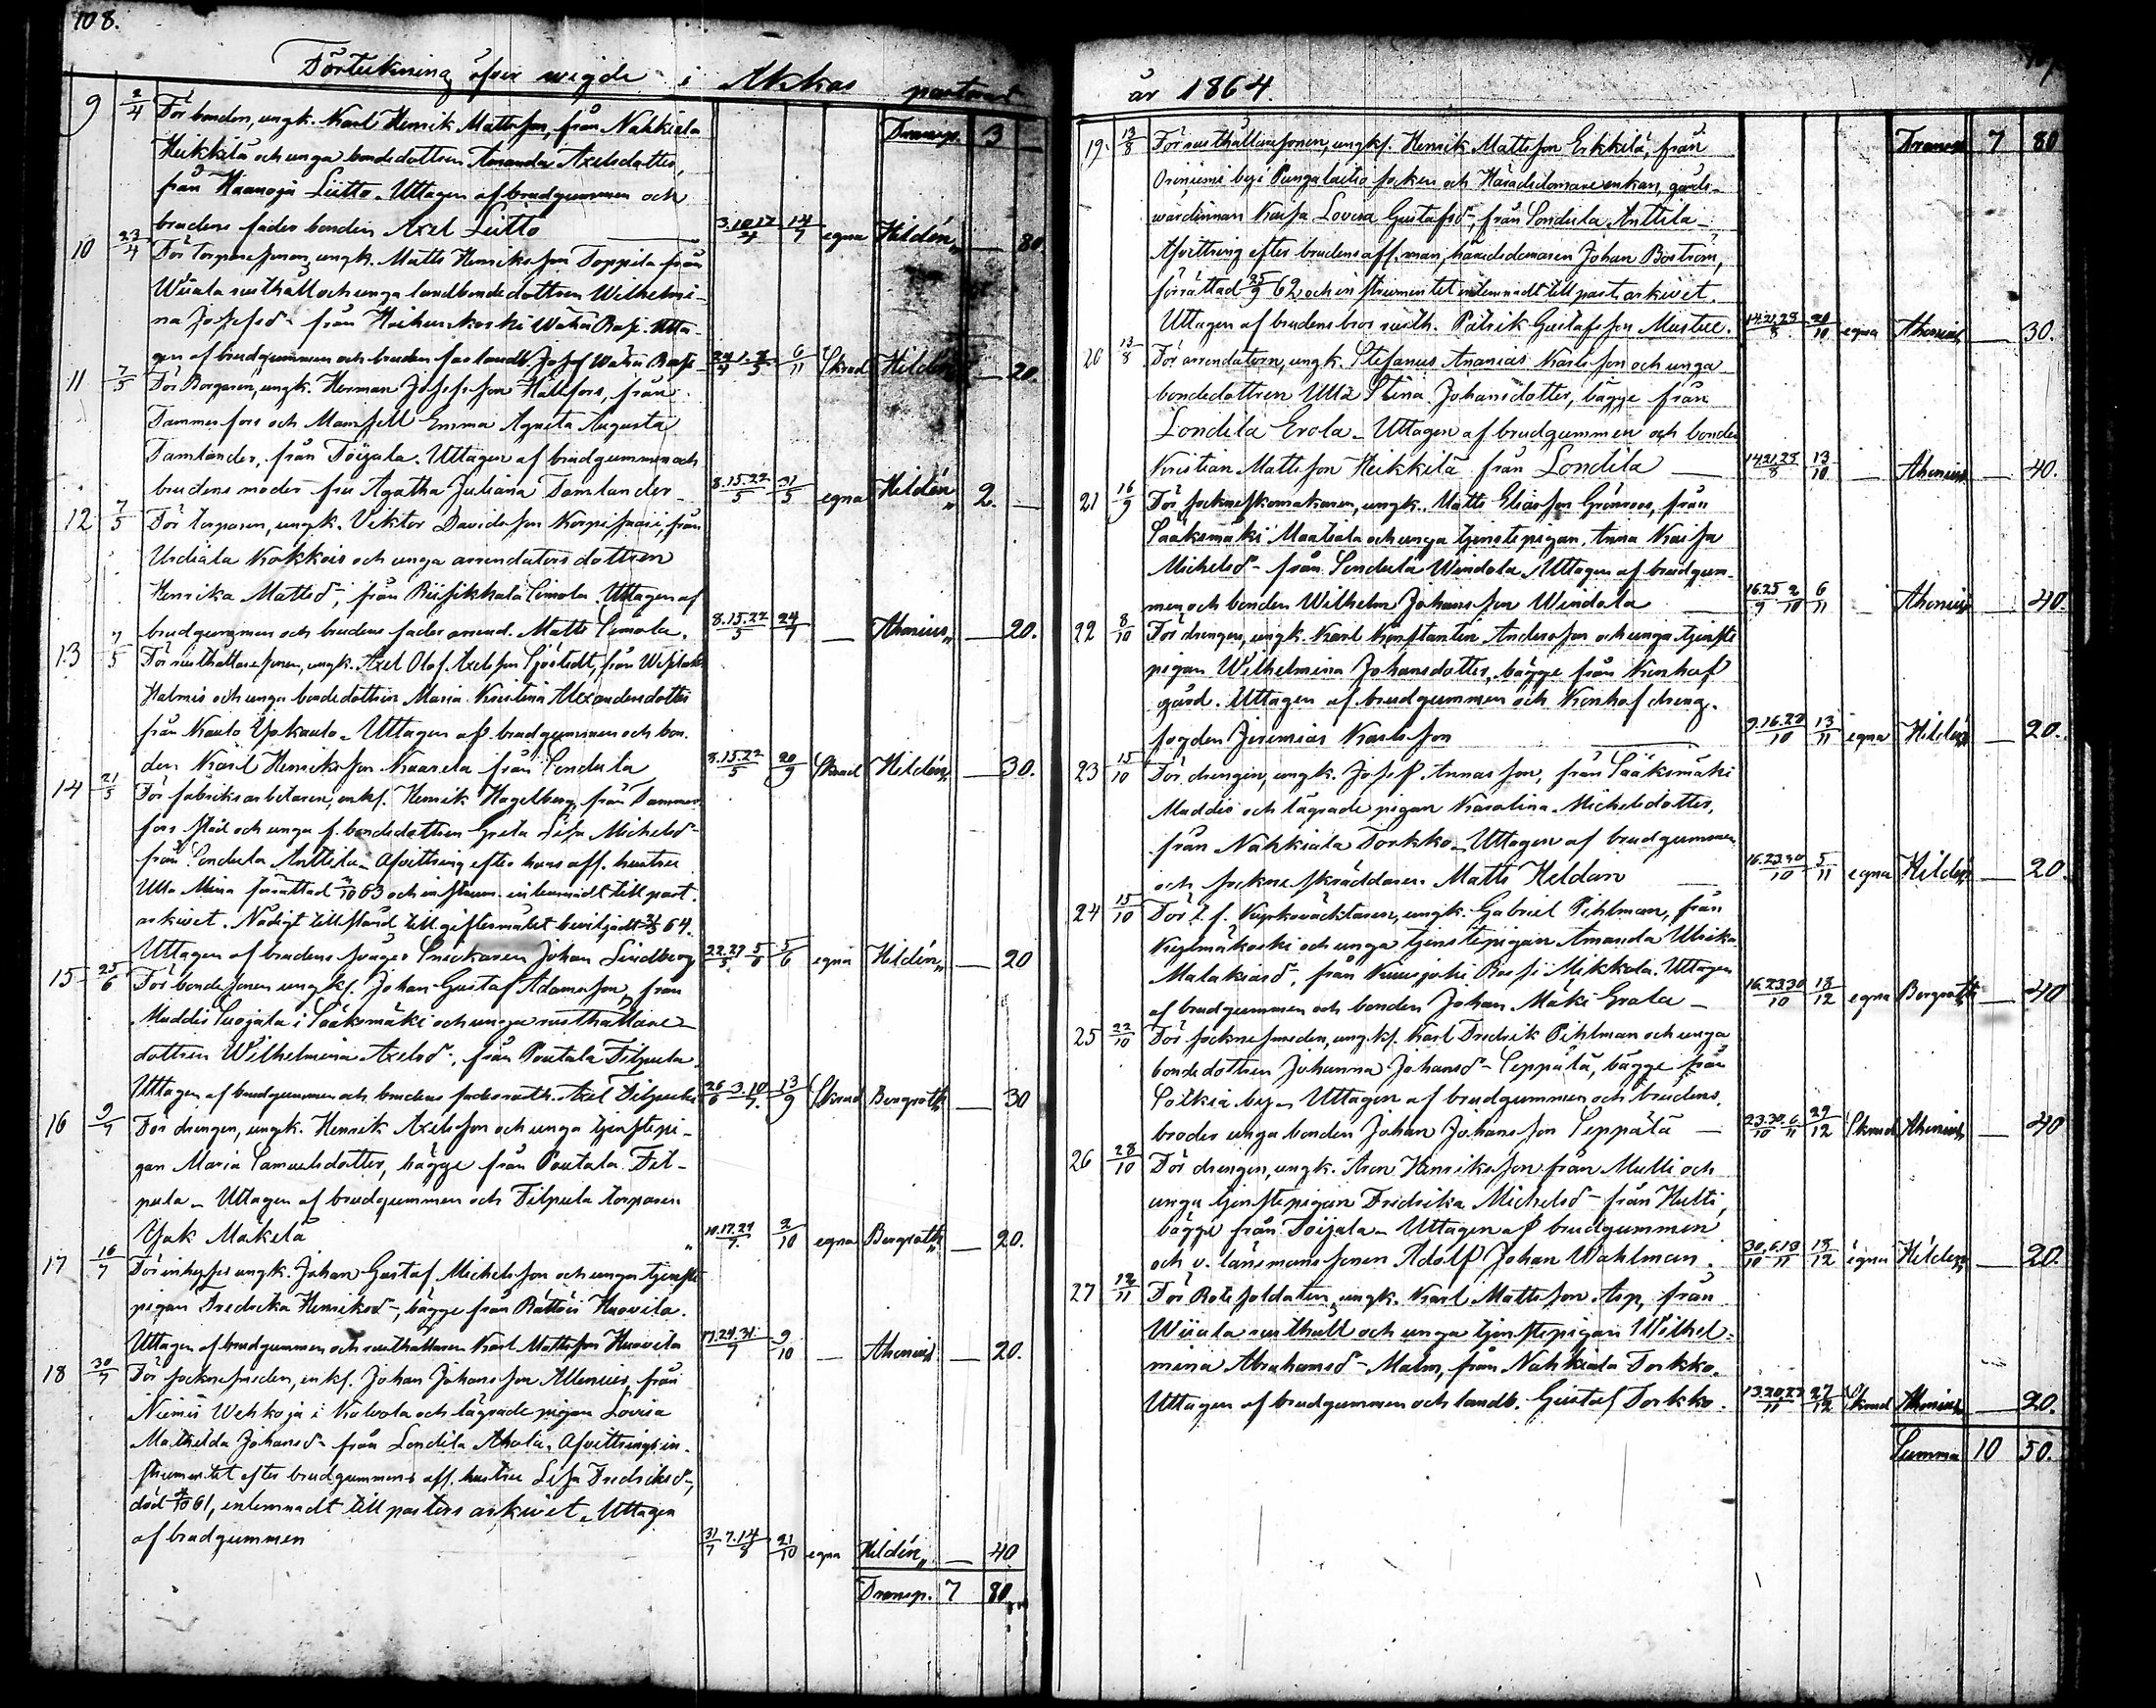 108.
Förteckning öfver wigde i Akkas pastorat
9 2/4 För bonden, ungk. Karl Henrik Mattsson, från Nahkiala Transp. 3 —
Heikkilä och unga bondedottren Amanda Axelsdotter,
från Haanoja Liitto. Uttagen af brudgummen och
brudens fader bonden Axel Liitto 3.10.17/4 17/7 egna Hildén „ — 80.
10 23/4 För torparesonen, ungk. Matts Henriksson Toppila från
Wiiala rusthåll och unga landbondedottren Wilhelmi-
na Josefsdr från Haihunkoski Wähä Rasi. Utta-
gen af brudgummen och bruden far landb. Josef Wähä Rasi 24/4 1.8/5 6/11 Skrad Hildén — 20.
11 7/5 För Borgaren, ungk. Herman Josefsson Hällfors, från
Tammerfors och Mamsell Emma Agneta Augusta
Tamlander, från Toijala. Uttagen af brudgummen och
brudens moder fru Agatha Juliana Tamlander 8.15.22/5 31/5 egna Hildén „ 2. —
12 7/5 För torparen, ungk. Viktor Davidsson Korpijaari, från
Urdiala Kokkois och unga arrendators dottren
Henrika Mattsdr, från Riisikkala Simola. Uttagen af
brudgummen och brudens fader arrend. Matts Simola. 8.15.22/5 24/7 — Ahonius „ — 20.
13 7/5 För rusthållaresonen, ungk. Axel Olof Axelsson Sjöstedt, från
Halmis och unga bondedottren Maria Kristina Alexandersdotter
från Kanto Ypkanto. Uttagen af brudgummen och bon-
den Karl Henriksson Kaarela från Sondula 8.15.22/5 20/9 Skrad Hildén „ — 30.
14 21/5 För fabriksarbetaren, enkl. Henrik Hagelberg, från Tammer-
fors stad och unga f. bondedottren Greta Lisa Michelsdr
från Sondula Anttila. Afvittring efter hans afl. hustru
Ulla Mina förrättad 63 och instrum. inlemnadt till past.
arkivet. Nådigt tillstånd till giftermålet beviljadt 64.
Uttagen af brudens svåger Snickaren Johan Lindberg 22.29/5 5/6 5/6 egna Hildén „ — 20
15 25/6 För bondesonen ungkl. Johan Gustaf Adamsson, från
Muddis Suojala i Sääksmäki och unga rusthållare-
dottren Wilhelmina Axelsdr, från Poutala Filpula.
Uttagen af brudgummen och brudens fader rusth. Axel Filpula 26/6 3.10/7. 13/9 Skrad Bergroth — 30
16 9/7 För drengen, ungk. Henrik Axelsson och unga tjenstepi-
gan Maria Samuelsdotter, bägge från Poutala Fil-
pula. Uttagen af brudgummen och Filpula torparen
Isak Mäkelä „ 10.17.24/7. 2/10 egna Bergroth „ — 20.
17 16/7 För inhyses ungk. Johan Gustaf Michelsson och unga tjenste
pigan Fredrika Henriksdr, bägge från Rättöis Huovila.
Uttagen af brudgummen och rusthållaren Karl Mattsson Huovila 17.24.31/7 9/10 — Ahonius — 20.
18 30/7 För sockensmeden, enkl. Johan Johansson Allenius, från
Niemis Wehkoja i Kalvola och lägrade pigan Lovisa
Mathilda Johansdr från Londila Ahola. Afvittrings in-
strumentet efter brudgummens afl. hustru Lisa Fredriksdr,
död 61, inlemnadt till pastors arkivet. Uttagen
af brudgummen 31/7 7.14/8 21/10 egna Hildén „ — 40
Transp. 7 80
år 1864.
19. 13/8 För rusthållaresonen, ungkl. Henrik Mattsson Erkkilä, från Transp. 7 80
Oriniemi by i Pungalaitio socken och Häradsdomareenkan, gårds-
wärdinnan Kaisa Lovisa Gustafsdr, från Sondula Anttila
Afvittring efter brudens afl. man, häradsdomaren Johan Boström,
förrättad 25/9 62 och instrumentet inlemnadt till past. arkivet.
Uttagen af brudens bror rusth. Patrik Gustafsson Mustue. 14.21.28/8 20/10 egna Ahonius — 30.
20 13/8 För arrendatorn, ungk. Stefanus Ananias Karlsson och unga
bondedottren Ulla Stina Johansdotter, bägge från
Londila Erola. Uttagen af brudgummen och bonden
Kristian Mattsson Heikkilä från Londila — 14.21.28/8 13/10 — Ahonius — 40.
21 16/9 För sockneskomakaren, ungk. Matts Eliasson Grönroos, från
Sääksmäki Maatiala och unga tjenstepigan, Anna Kaisa
Michelsdr från Sondula Windala. Uttagen af brudgum-
men och bonden Wilhelm Johansson Windala — 18.25/9 2/10 6/11 — Ahonius — 40.
22 8/10 För drengen, ungk. Karl Konstantin Andersson och unga tjenste
pigan Wilhelmina Johansdotter, bägge från Konhof
gård. Uttagen af brudgummen och Konhof dreng-
fogden Jeremias Karlsson 9.16.23/10 13/11 egna Hildén — 20.
23 15/10 För drengen, ungk. Josef Annasson, från Sääksmäki
Muddis och lägrade pigan Karolina Michelsdotter,
från Nahkiala Torkko. Uttagen af brudgummen
och sockneskräddaren Matts Heldan — 16.23.30/10 5/11 egna Hildén — 20.
24 15/10 För t. f. Kyrkoväcktaren, ungk. Gabriel Pihlman, från
Kylmäkoski och unga tjenstepigan Amanda Ulrika
Malakiasdr, från Kurisjoki Rasi Mikkola. Uttagen
af brudgummen och bonden Johan Mäki Erola — 16.23.30/10 18/12 egna Bergroth — 40
25 22/10 För socknesmeden, ungkl. Karl Fredrik Pihlman och unga
bondedottren Johanna Johansdr Seppälä, bägge från
Sotkia by. Uttagen af brudgummen och brudens
broder unga bonden Johan Johansson Seppälä — 23.30/10 6/11 29/12 Skrad Ahonius — 40
26 28/10 För drengen, ungk. Aron Henriksson från Mulli och
unga tjenstepigan Fredrika Michelsdr från Hulti,
bägge från Toijala. Uttagen af brudgummen
och v. länsmanssonen Adolf Johan Wahlman. 30/10 6.13/11 18/12 egna Hildén — 20.
27 12/11 För Rotesoldaten, ungk. Karl Mattsson Asp, från
Wiiala rusthåll och unga tjenstepigan Wilhel-
mina Abrahamsdr Malm, från Nahkiala Torkko.
Uttagen af brudgummen och landb. Gustaf Torkko. 13.20.27/11 27/12 Skrad Ahonius — 20.
Summa 10 50.